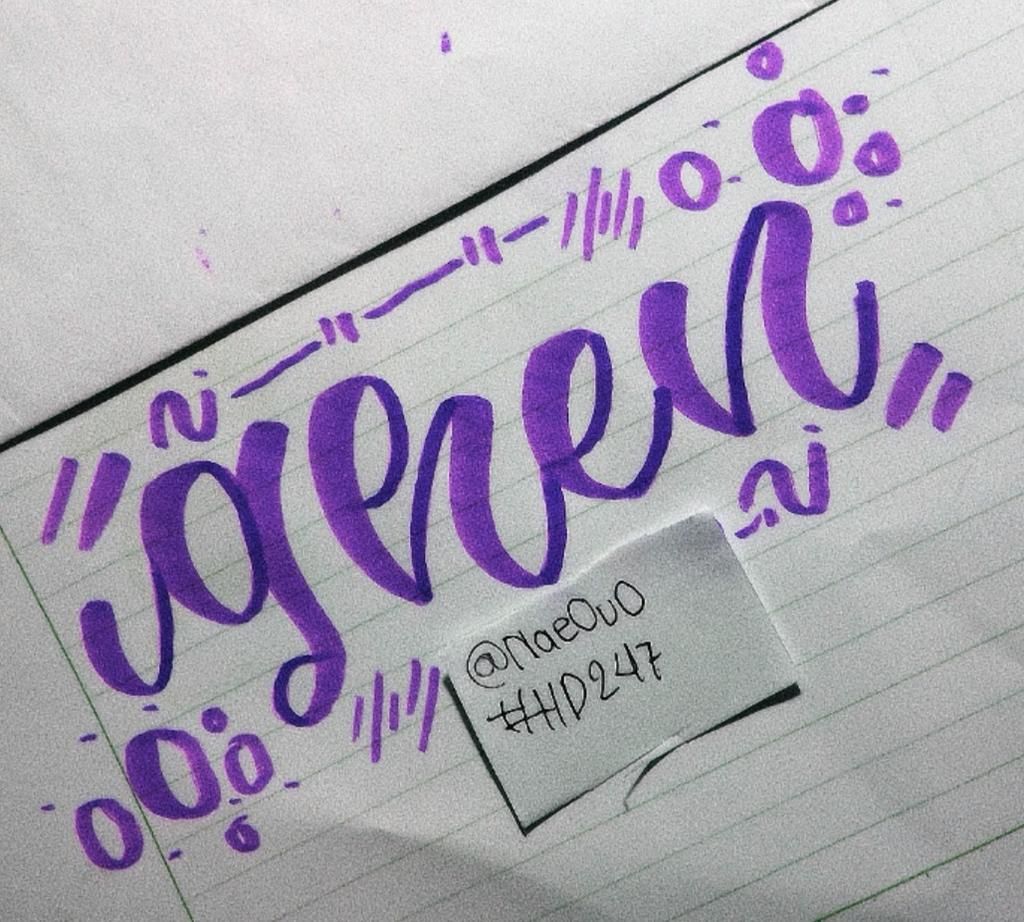 "gren"
@NaeOuO
#HD247